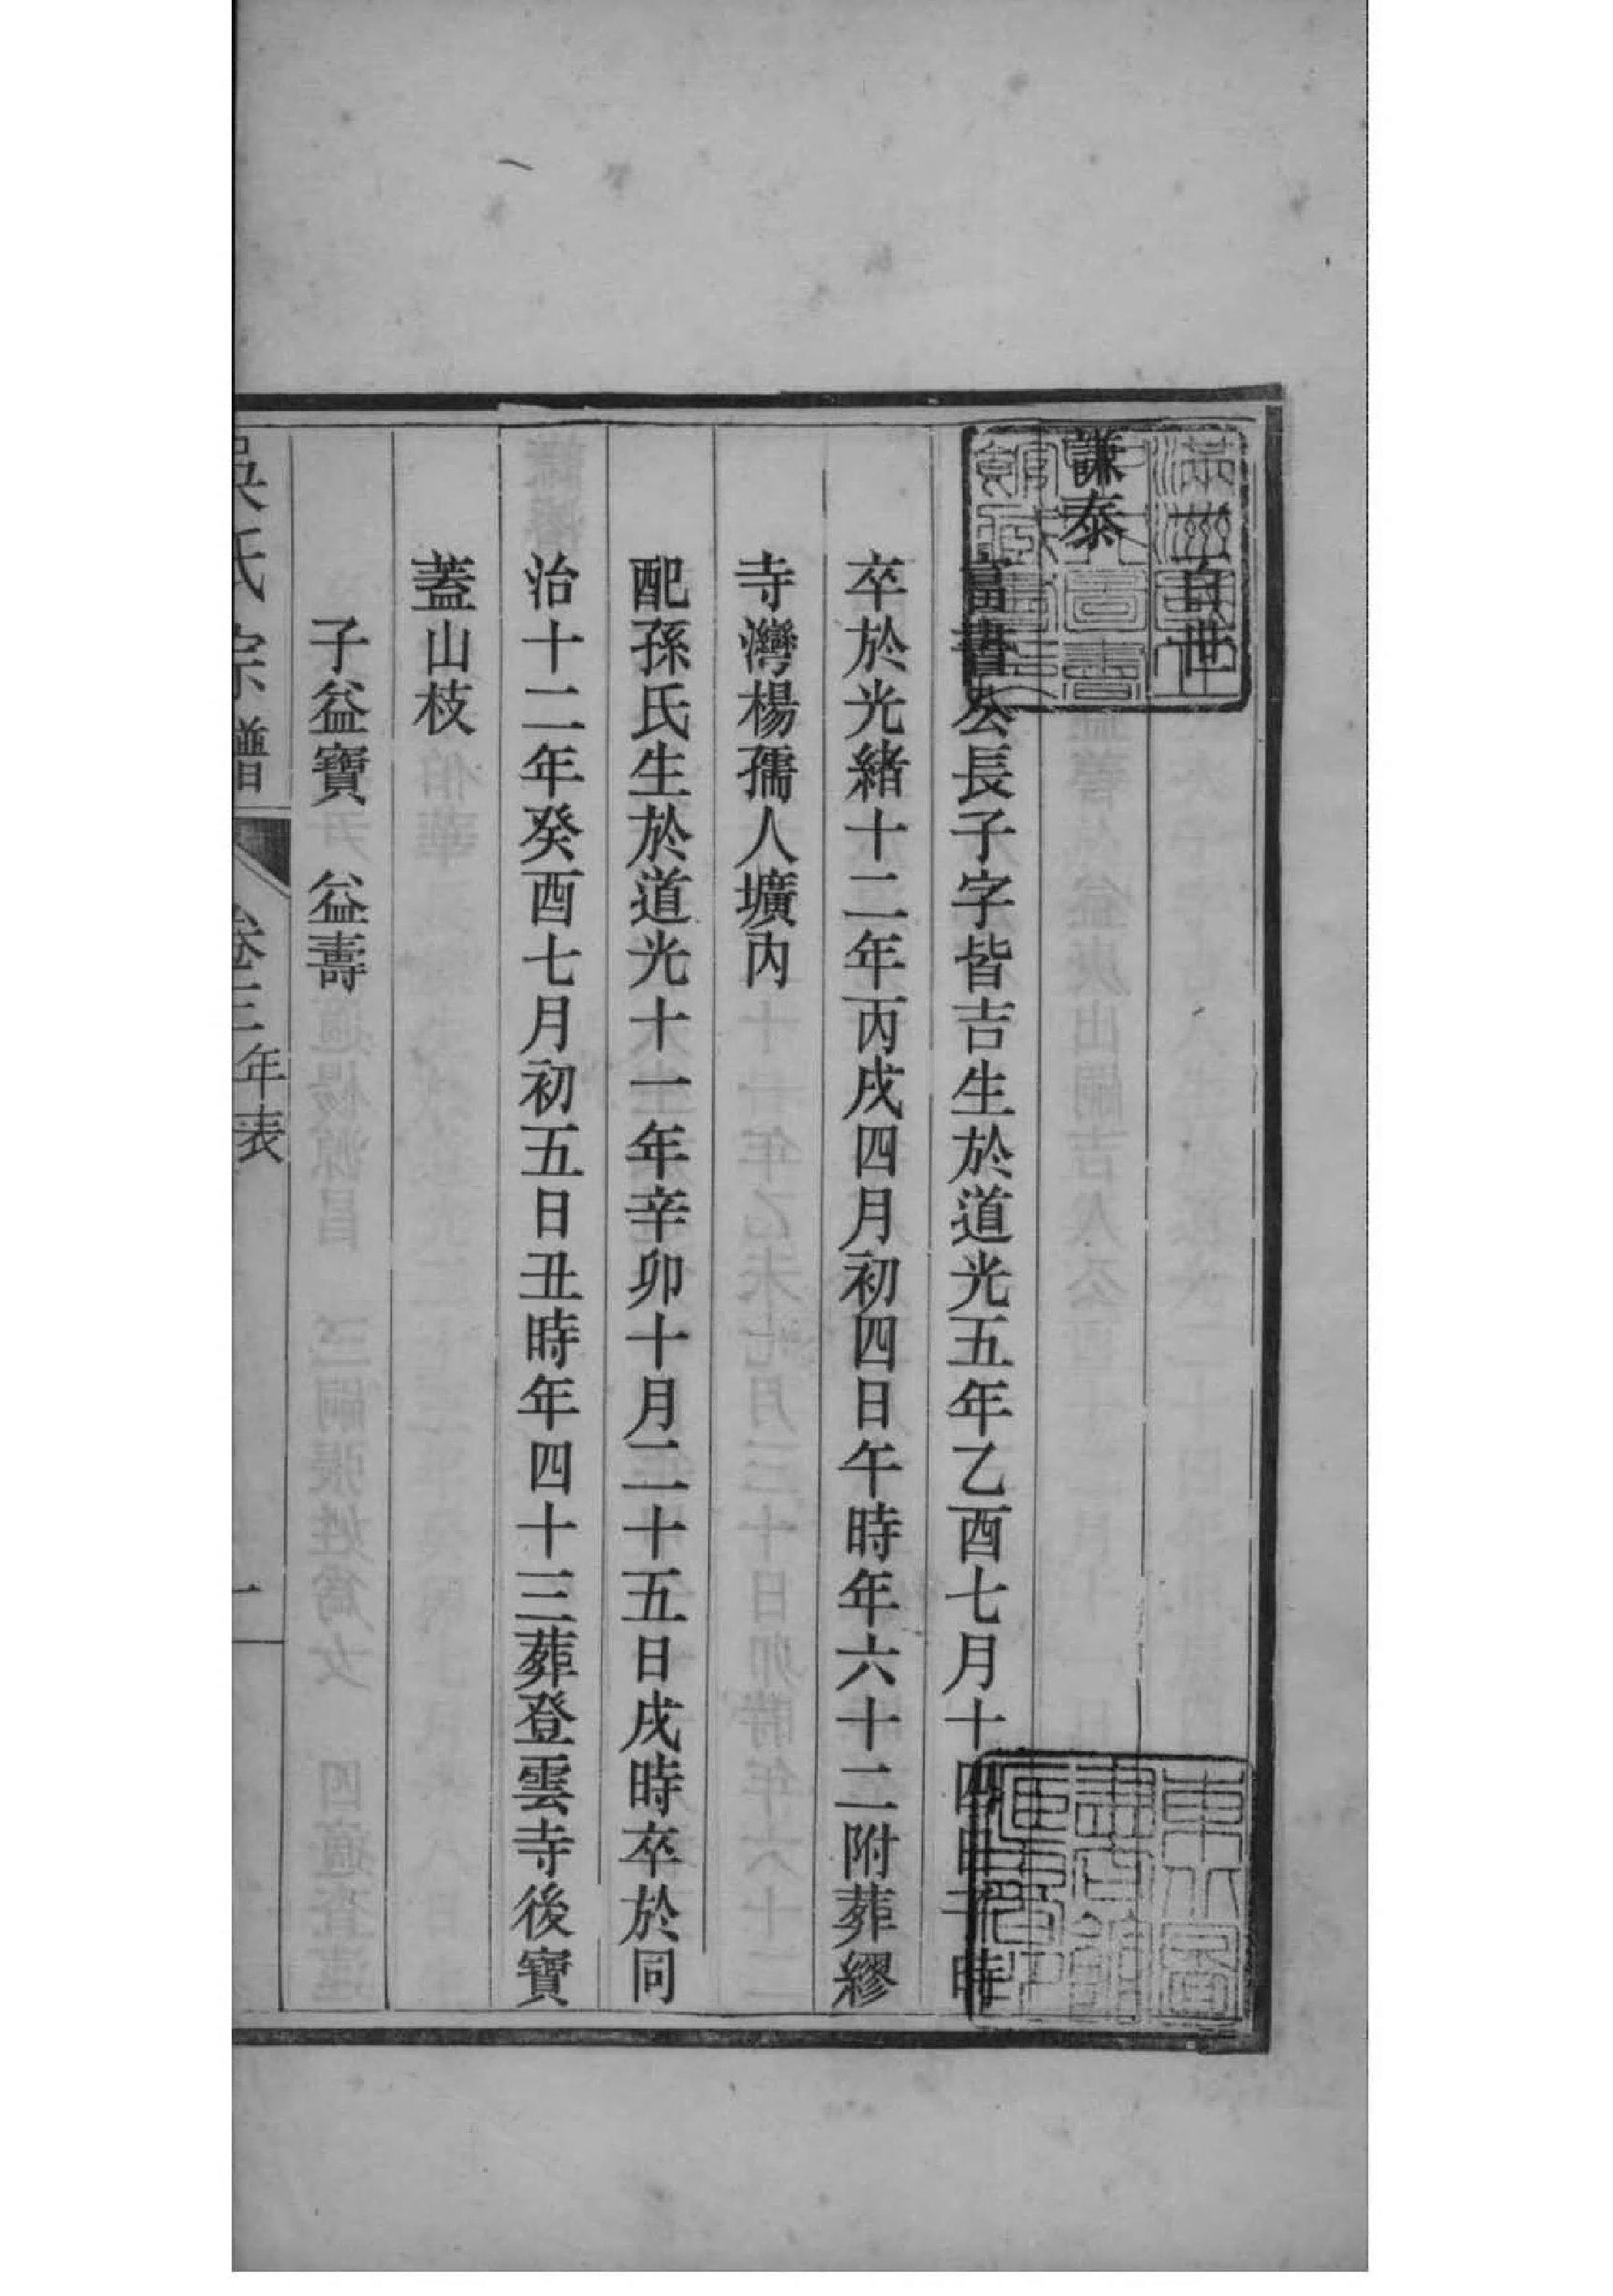 百世
謙泰
富春公長子字皆吉生於道光五年乙酉七月十四日子時
卒於光緒十二年丙戌四月初四日午時年六十二附葬繆
寺灣楊孺人壙內
配孫氏生於道光十一年辛卯十月二十五日戌時卒於同
治十二年癸酉七月初五日丑時年四十三葬登雲寺後寶
蓋山枝
子益寶 益壽
吳氏宗譜 卷三年表 一